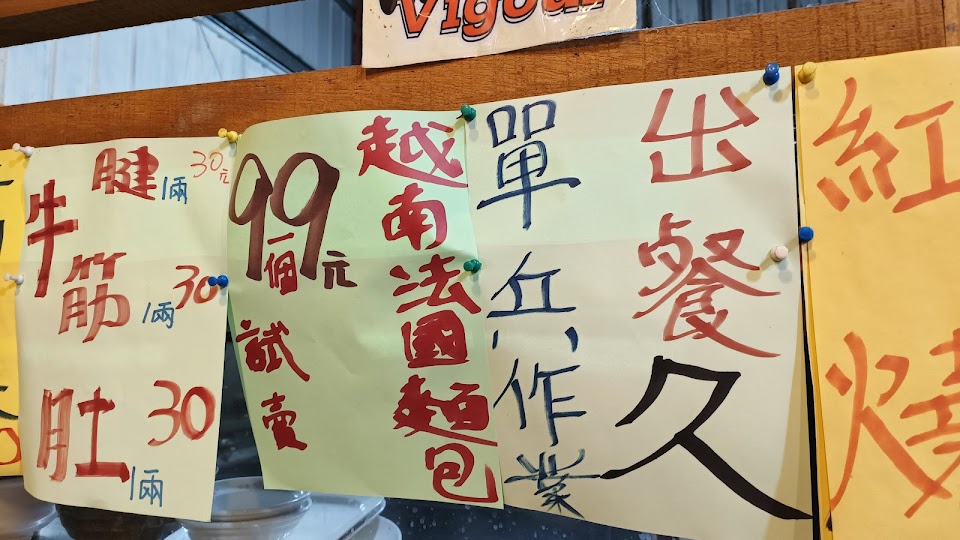 Vigour
牛
腱 1兩 30元
筋 1兩 30
肚 1兩 30
越南法國麵包
99元
一個
試賣
出餐久
單兵作業
紅燒